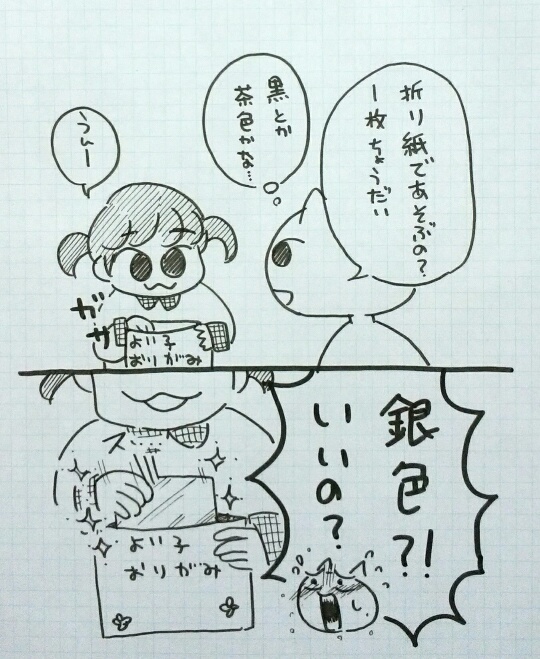 折り紙であそぶの?
一枚ちょうだい
黒とか
茶色かな…
うんー
ガサ
よい子
おりがみ
銀色?!
いいの?
ス
よい子
おりがみ